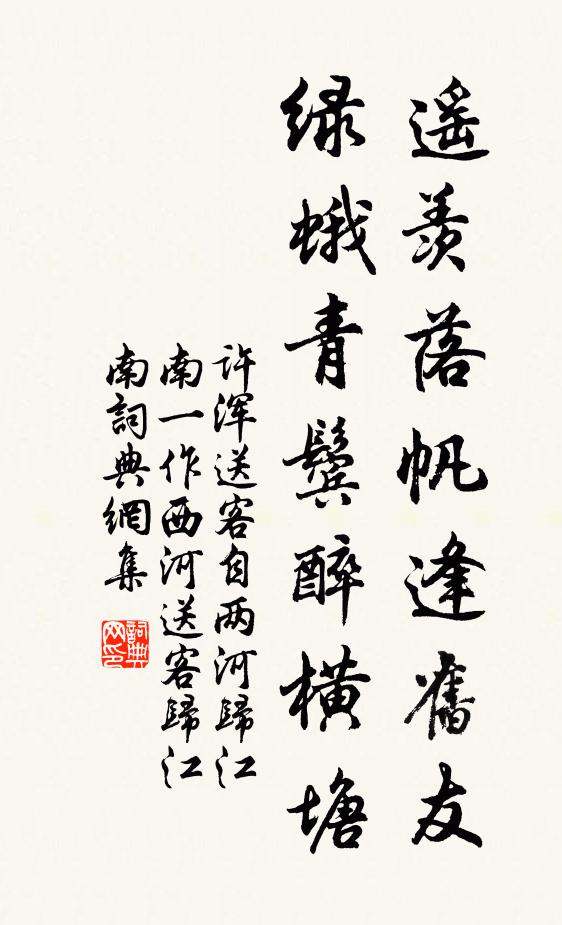 遥羡落帆逢舊友
绿蛾青鬓醉横塘
许浑送客自两河歸江
南一作西河送客歸江
南詞典網集
詞典网印